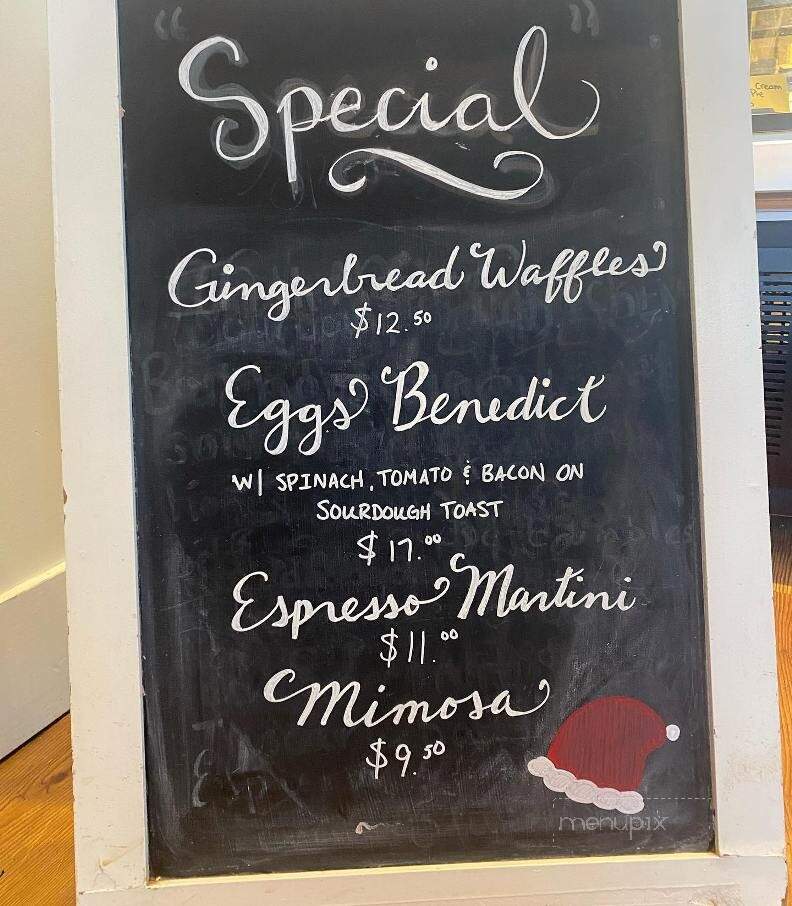 Special
Gingerbread Waffles
$12.50
Eggs Benedict
W/ SPINACH, TOMATO & BACON ON
SOURDOUGH TOAST
$17.00
Espresso Martini
$11.00
Mimosa
$9.50
menupix
Cream
Pie